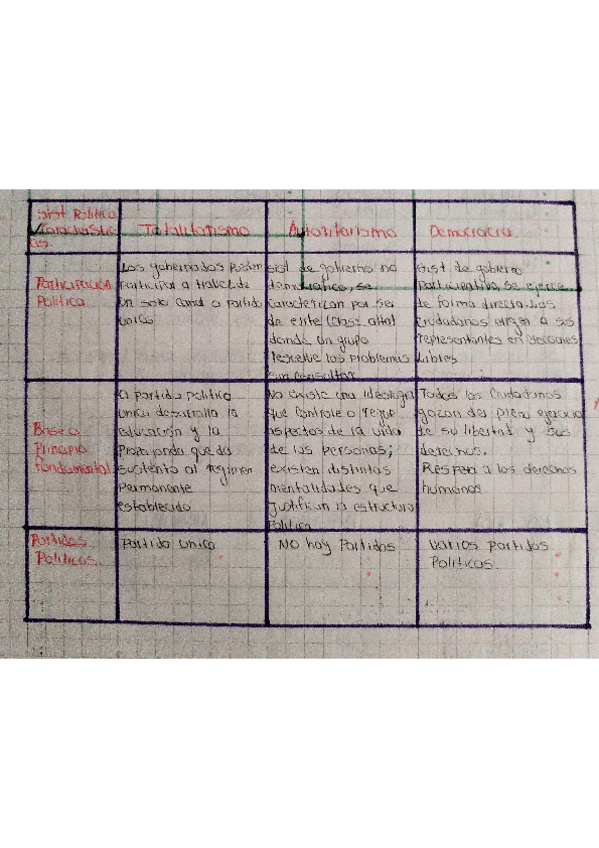 Sist Politico
Caracteristic
as.
Totalitarismo
Autoritarismo
Democracia
Participación
Politica
Los gobernados Pueden
Participar a travez de
un solo Canal o Partido
unico
Sist de gobierno no
democrático, se
Caracterizan por ser
de elite (clase alta)
donde un grupo
resuelve los problemas
sin consultar
Sist de gobierno
Participativo, se ejerce
de forma directa. Los
Ciudadanos eligen a sus
representantes en elecciones
Libres
Base o
Principio
Fundamental
El partido politico
unico desarrolla la
educación y la
Propaganda que da
sustento al regimen
Permanente
establecido
No existe una ideologia
que Controle o regue
aspectos de la vida
de las personas;
existen distintas
mentalidades que
Justifican la estructura
Politica
Todos los Ciudadanos
gozan del pleno ejercicio
de su libertad y sus
derechos.
Respeta a los derechos
humanos
Partidos
Politicos.
Partido unico
NO hay Partidos
Varios partidos
Politicos.